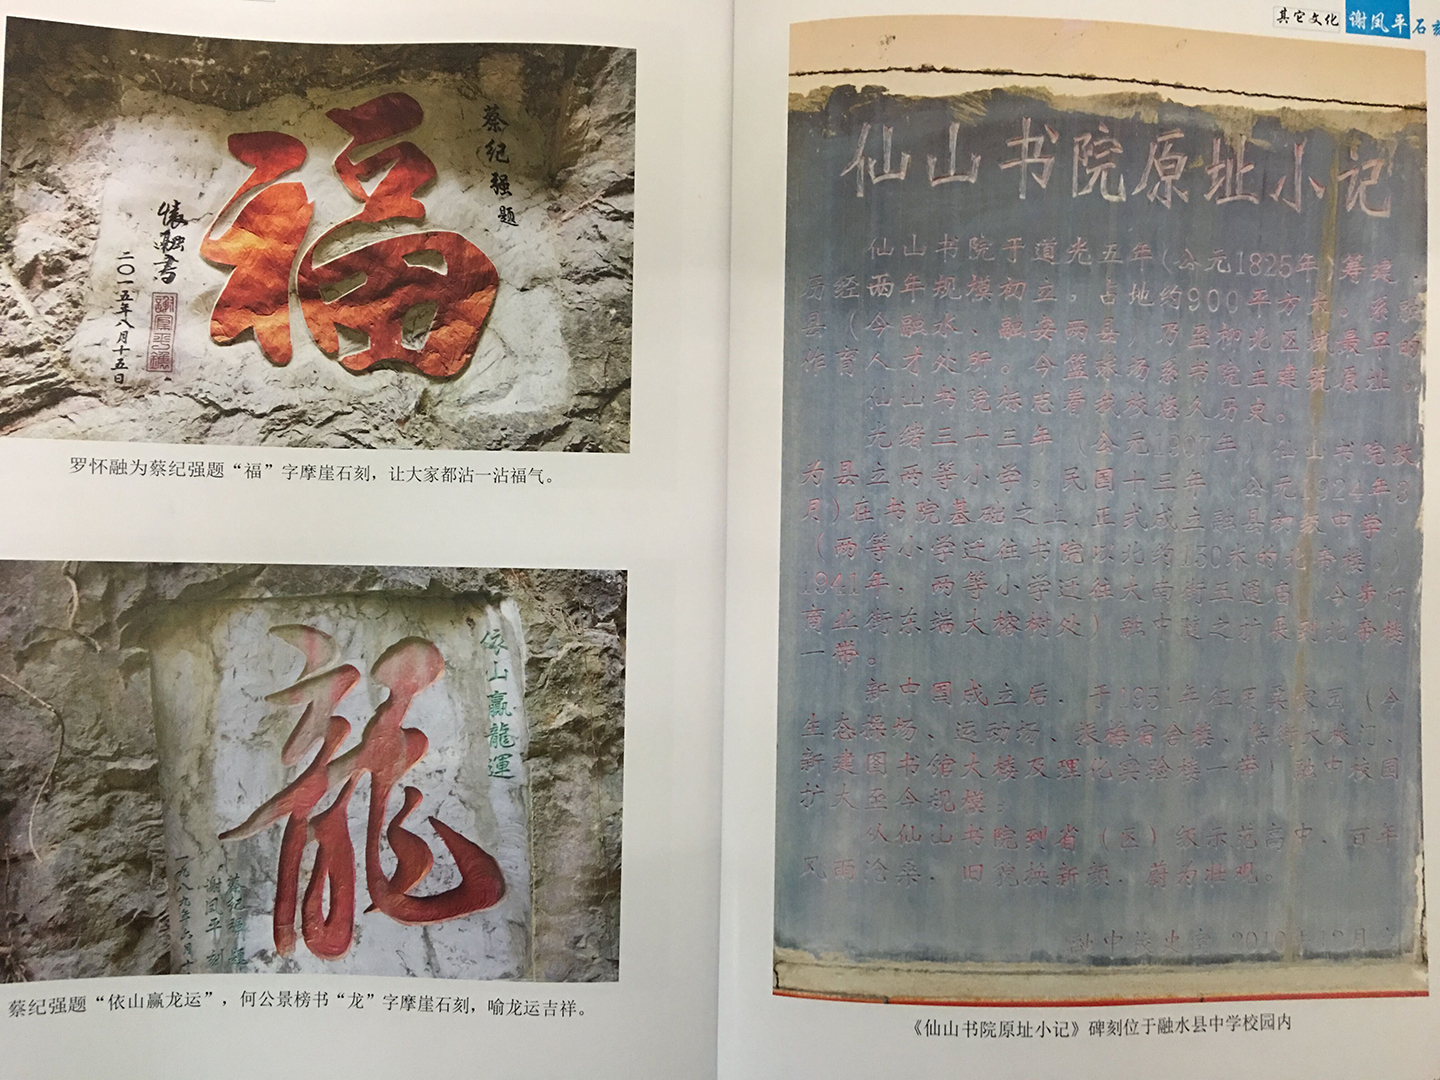 福
蔡纪强题
懷融書
二〇一五年八月十五日
罗怀融为蔡纪强题“福”字摩崖石刻，让大家都沾一沾福气。
龍
依山贏龍運
蔡纪强题
谢凤平刻
一九八九年六月十
蔡纪强题“依山赢龙运”，何公景榜书“龙”字摩崖石刻，喻龙运吉祥。
其它文化 谢凤平石刻
仙山书院原址小记
仙山书院于道光五年（公元1825年）筹建，
历经两年规模初立。占地约900平方米。系融
县（今融水、融安两县）乃至柳北区域最早的
作育人才处所。今篮球场系书院主建筑原址。
仙山书院标志着我校悠久历史。
光绪三十三年（公元1907年）仙山书院改
为县立两等小学。民国十三年（公元1924年3
月）在书院基础之上，正式成立融县初级中学，
（两等小学迁往书院以北约150米的北帝楼。）
1941年，两等小学迁往大南街五通庙（今步行
商业街东端大榕树处）融中随之扩展到北帝楼
一带。
新中国成立后，于1951年征用吴家园（今
生态操场、运动场、宿舍楼、大校门、
新建图书馆大楼及理化实验楼一带）融中校园
扩大至今规模。
从仙山书院到省（区）级示范高中，百年
风雨沧桑，旧貌换新颜，蔚为壮观。
融中校史室 2010年12月
《仙山书院原址小记》碑刻位于融水县中学校园内